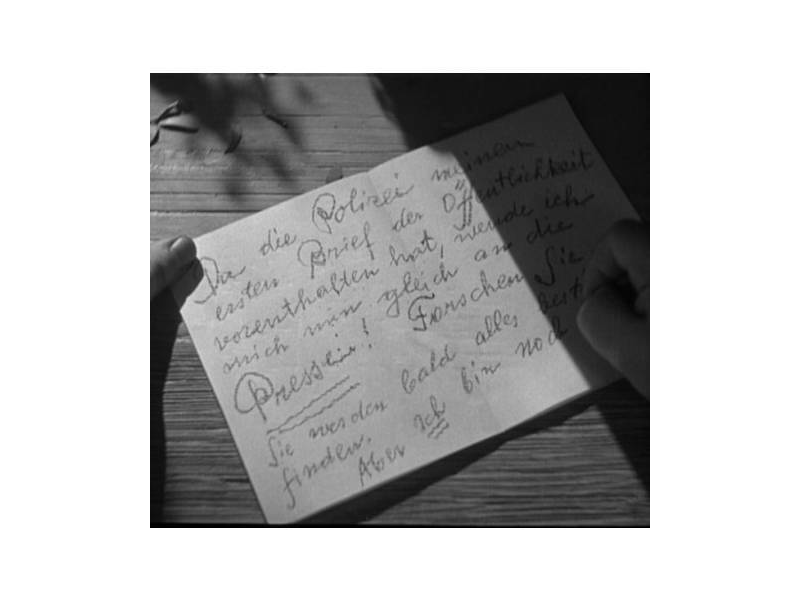 Da die Polizei meinen
ersten Brief der Öffentlichkeit
vorenthalten hat, wende ich
mich nun gleich an die
Presse! Forschen Sie
Sie werden bald alles bestä
finden. Aber ich bin noch